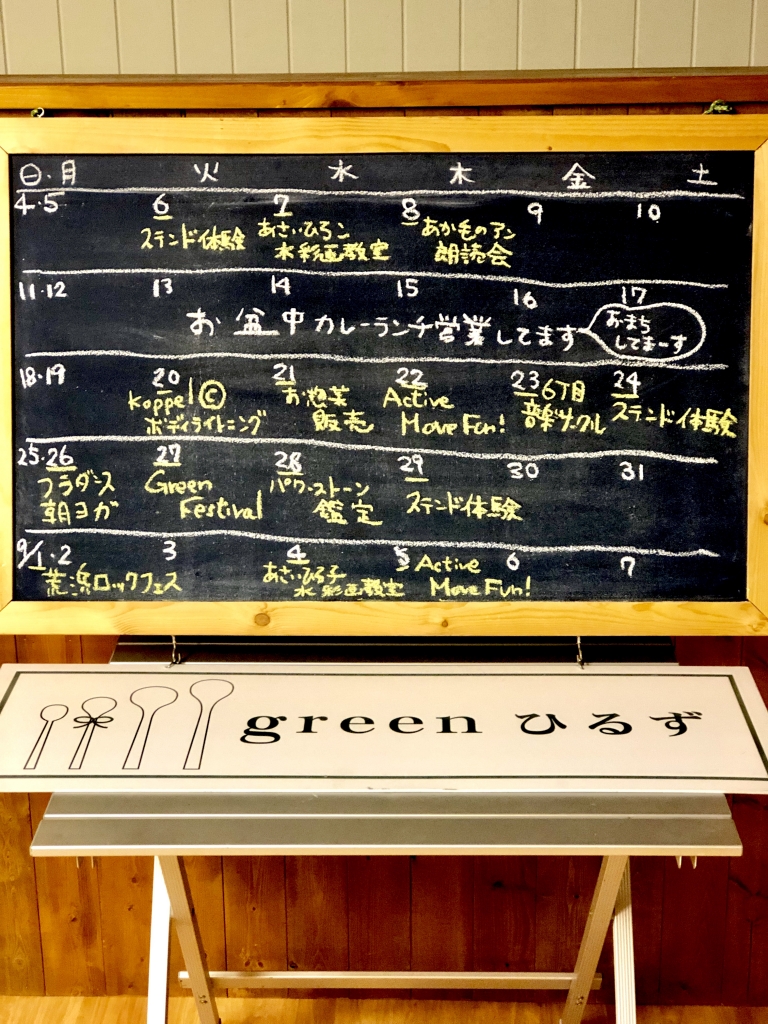 日・月 火 水 木 金 土
4・5 6 7 8 9 10
ステンドイ体験 あさいひろこ あか毛のアン
水彩画教室 朗読会
11・12 13 14 15 16 17
お盆中カレーランチ営業してます おまち
してまーす
18・19 20 21 22 23 6丁目 24
Koppel © お惣菜 Active 音楽サークル ステンドイ体験
ボディライトニング 販売 Move Fun!
25・26 27 28 29 30 31
フラダンス Green パワーストーン ステンドイ体験
朝ヨガ Festival 鑑定
9/1・2 3 4 5 Active 6 7
荒浜ロックフェス あさいひろ子 Move Fun!
水彩画教室
green ひるず